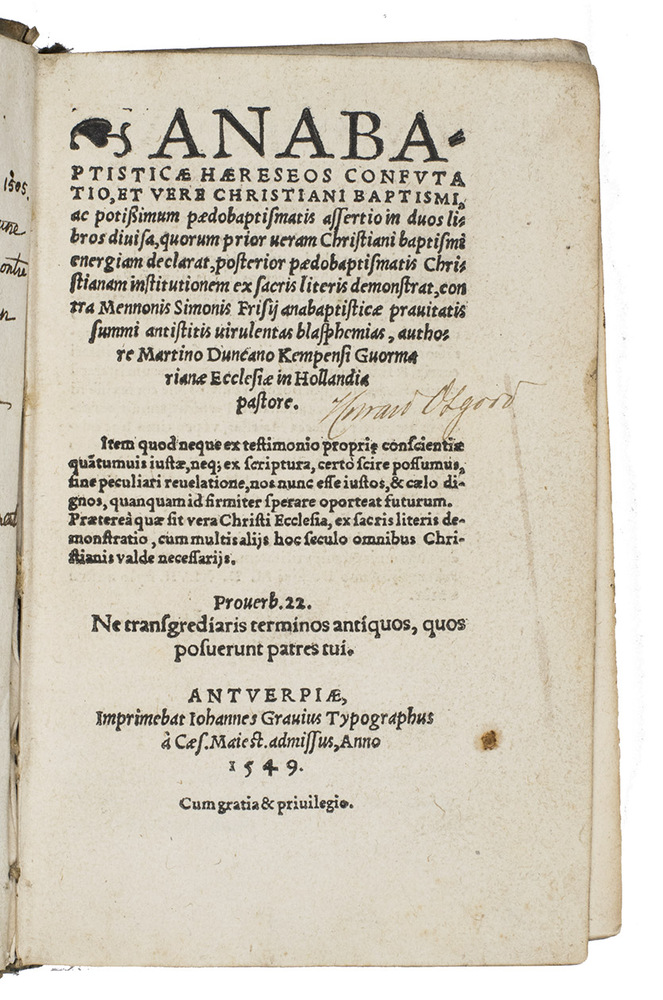 ANABA-
PTISTICÆ HÆRESEOS CONFVTA
TIO, ET VERE CHRISTIANI BAPTISMI,
ac potißimum pædobaptiſmatis aſſertio in duos li-
bros diuiſa, quorum prior ueram Chriſtiani baptiſmi
energiam declarat, poſterior pædobaptiſmatis Chri-
ſtianam inſtitutionem ex ſacris literis demonſtrat, con
tra Mennonis Simonis Friſij anabaptiſticæ prauitatis
ſummi antiſtitis uirulentas blaſphemias, autho-
re Martino Duncano Kempenſi Guorma
rianæ Eccleſiæ in Hollandia
paſtore.
Howard Osgood
Item quod neque ex teſtimonio proprię conſcientiæ
quãtumuis iuſtæ, neq; ex ſcriptura, certò ſcire poſſumus,
ſine peculiari reuelatione, nos nunc eſſe iuſtos, & cælo di-
gnos, quanquam id firmiter ſperare oporteat futurum.
Prætereà quæ ſit vera Chriſti Eccleſia, ex ſacris literis de-
monſtratio, cum multis alijs hoc ſeculo omnibus Chri-
ſtianis valde neceſſarijs.
Prouerb. 22.
Ne tranſgrediaris terminos antíquos, quos
poſuerunt patres tui.
ANTVERPIÆ,
Imprimebat Iohannes Grauius Typographus
à Cæſ. Maieſt. admiſſus, Anno
1549.
Cum gratia & priuilegio.
1505.